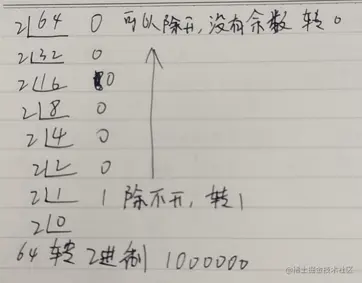 2 64 0 可以除开,没有余数 转 0
2 32 0
2 16 0
2 8 0
2 4 0
2 2 0
2 1 1 除不开, 转1
2 0
64 转 2进制 1000000
@稀土掘金技术社区